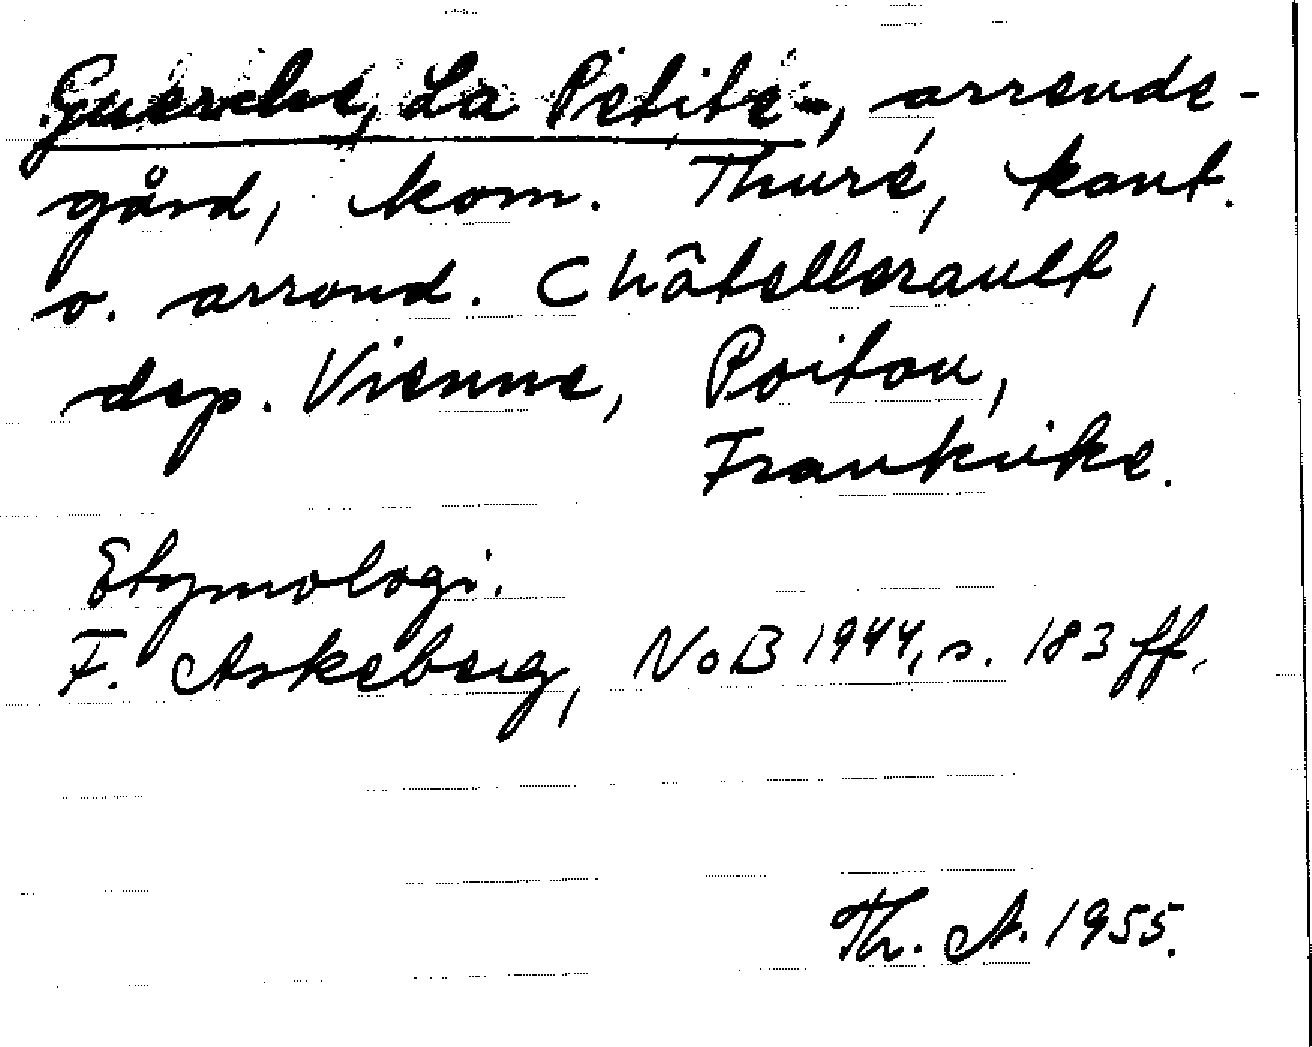 Guerche, La Petite-, arrende-
gård, kom. Thuré, kant.
o. arrond. Châtellerault,
dep. Vienne, Poitou,
Frankrike.
Etymologi.
F. Askeberg, NoB 1944, s. 183 ff.
Th. A. 1955.